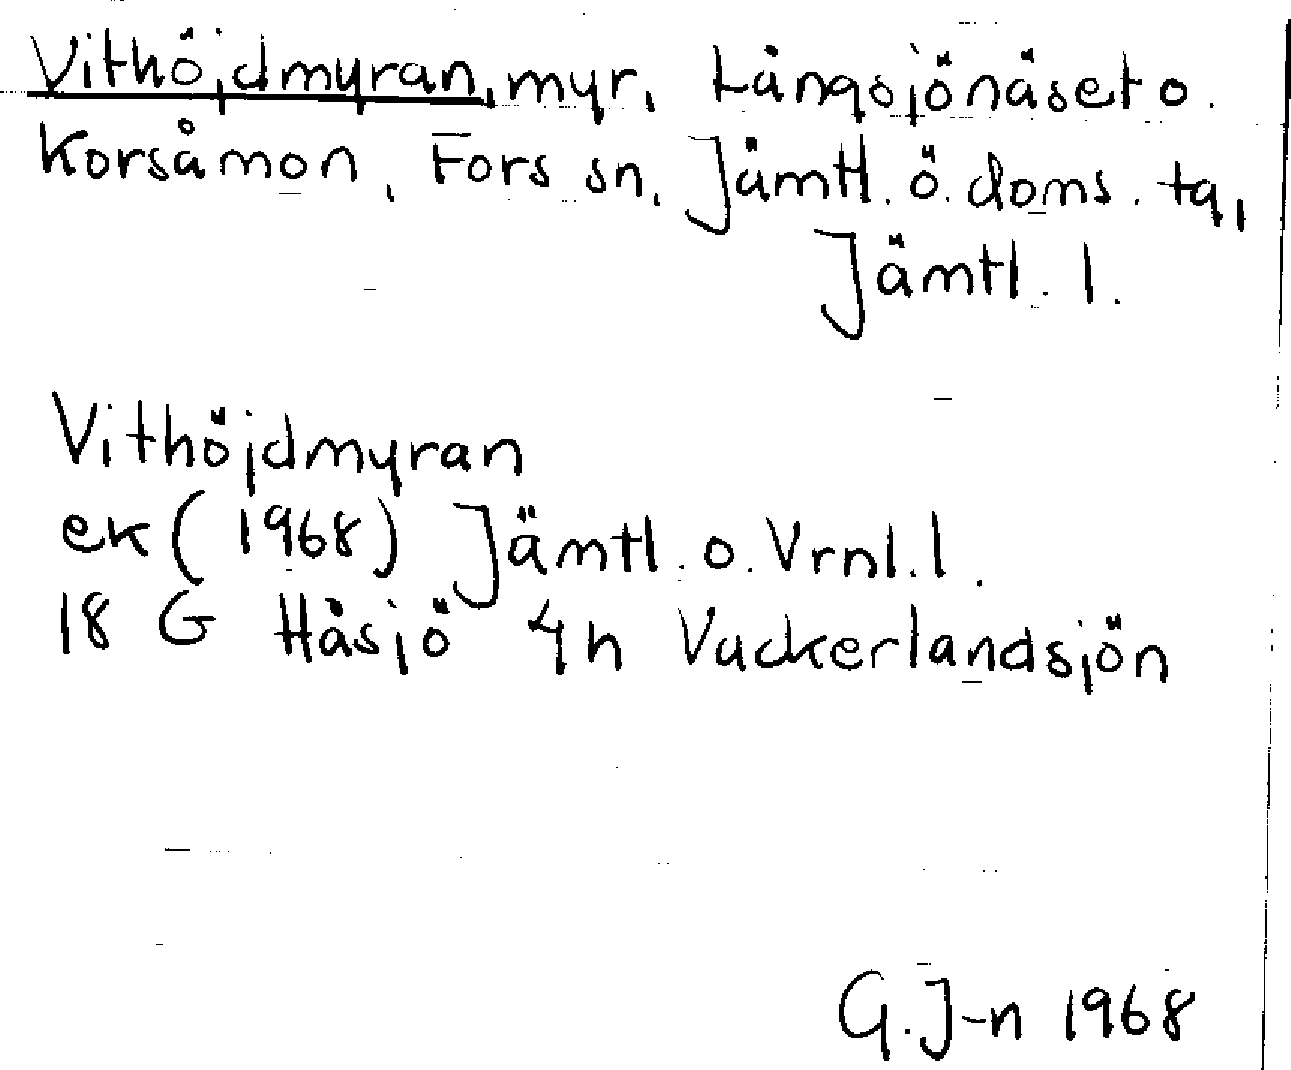 Vithöjdmyran, myr, Långsjönäset o.
Korsåmon, Fors sn, Jämtl. ö. doms. tg,
Jämtl. l.
Vithöjdmyran
ek (1968) Jämtl. o. Vrnl. l.
18 G Håsjö 4h Vackerlandsjön
G. J-n 1968